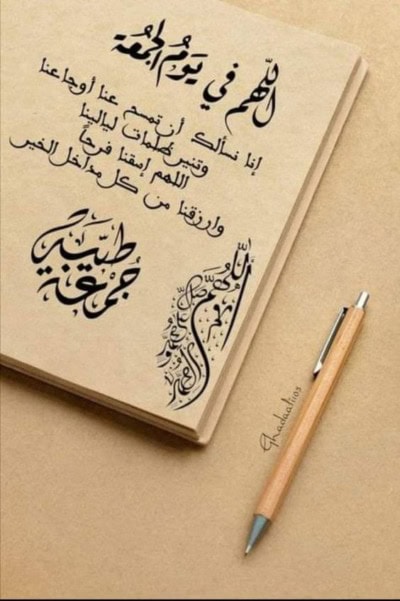 اللهم في يوم الجمعة
إنا نسألك أن تمسح عنا أوجاعنا
وتنير ظلمات ليالينا
اللهم إمقنا فرحاً
وارزقنا من كل مداخل الخير
جمعة طيبة
اللهم صل على محمد
Ghadaali03